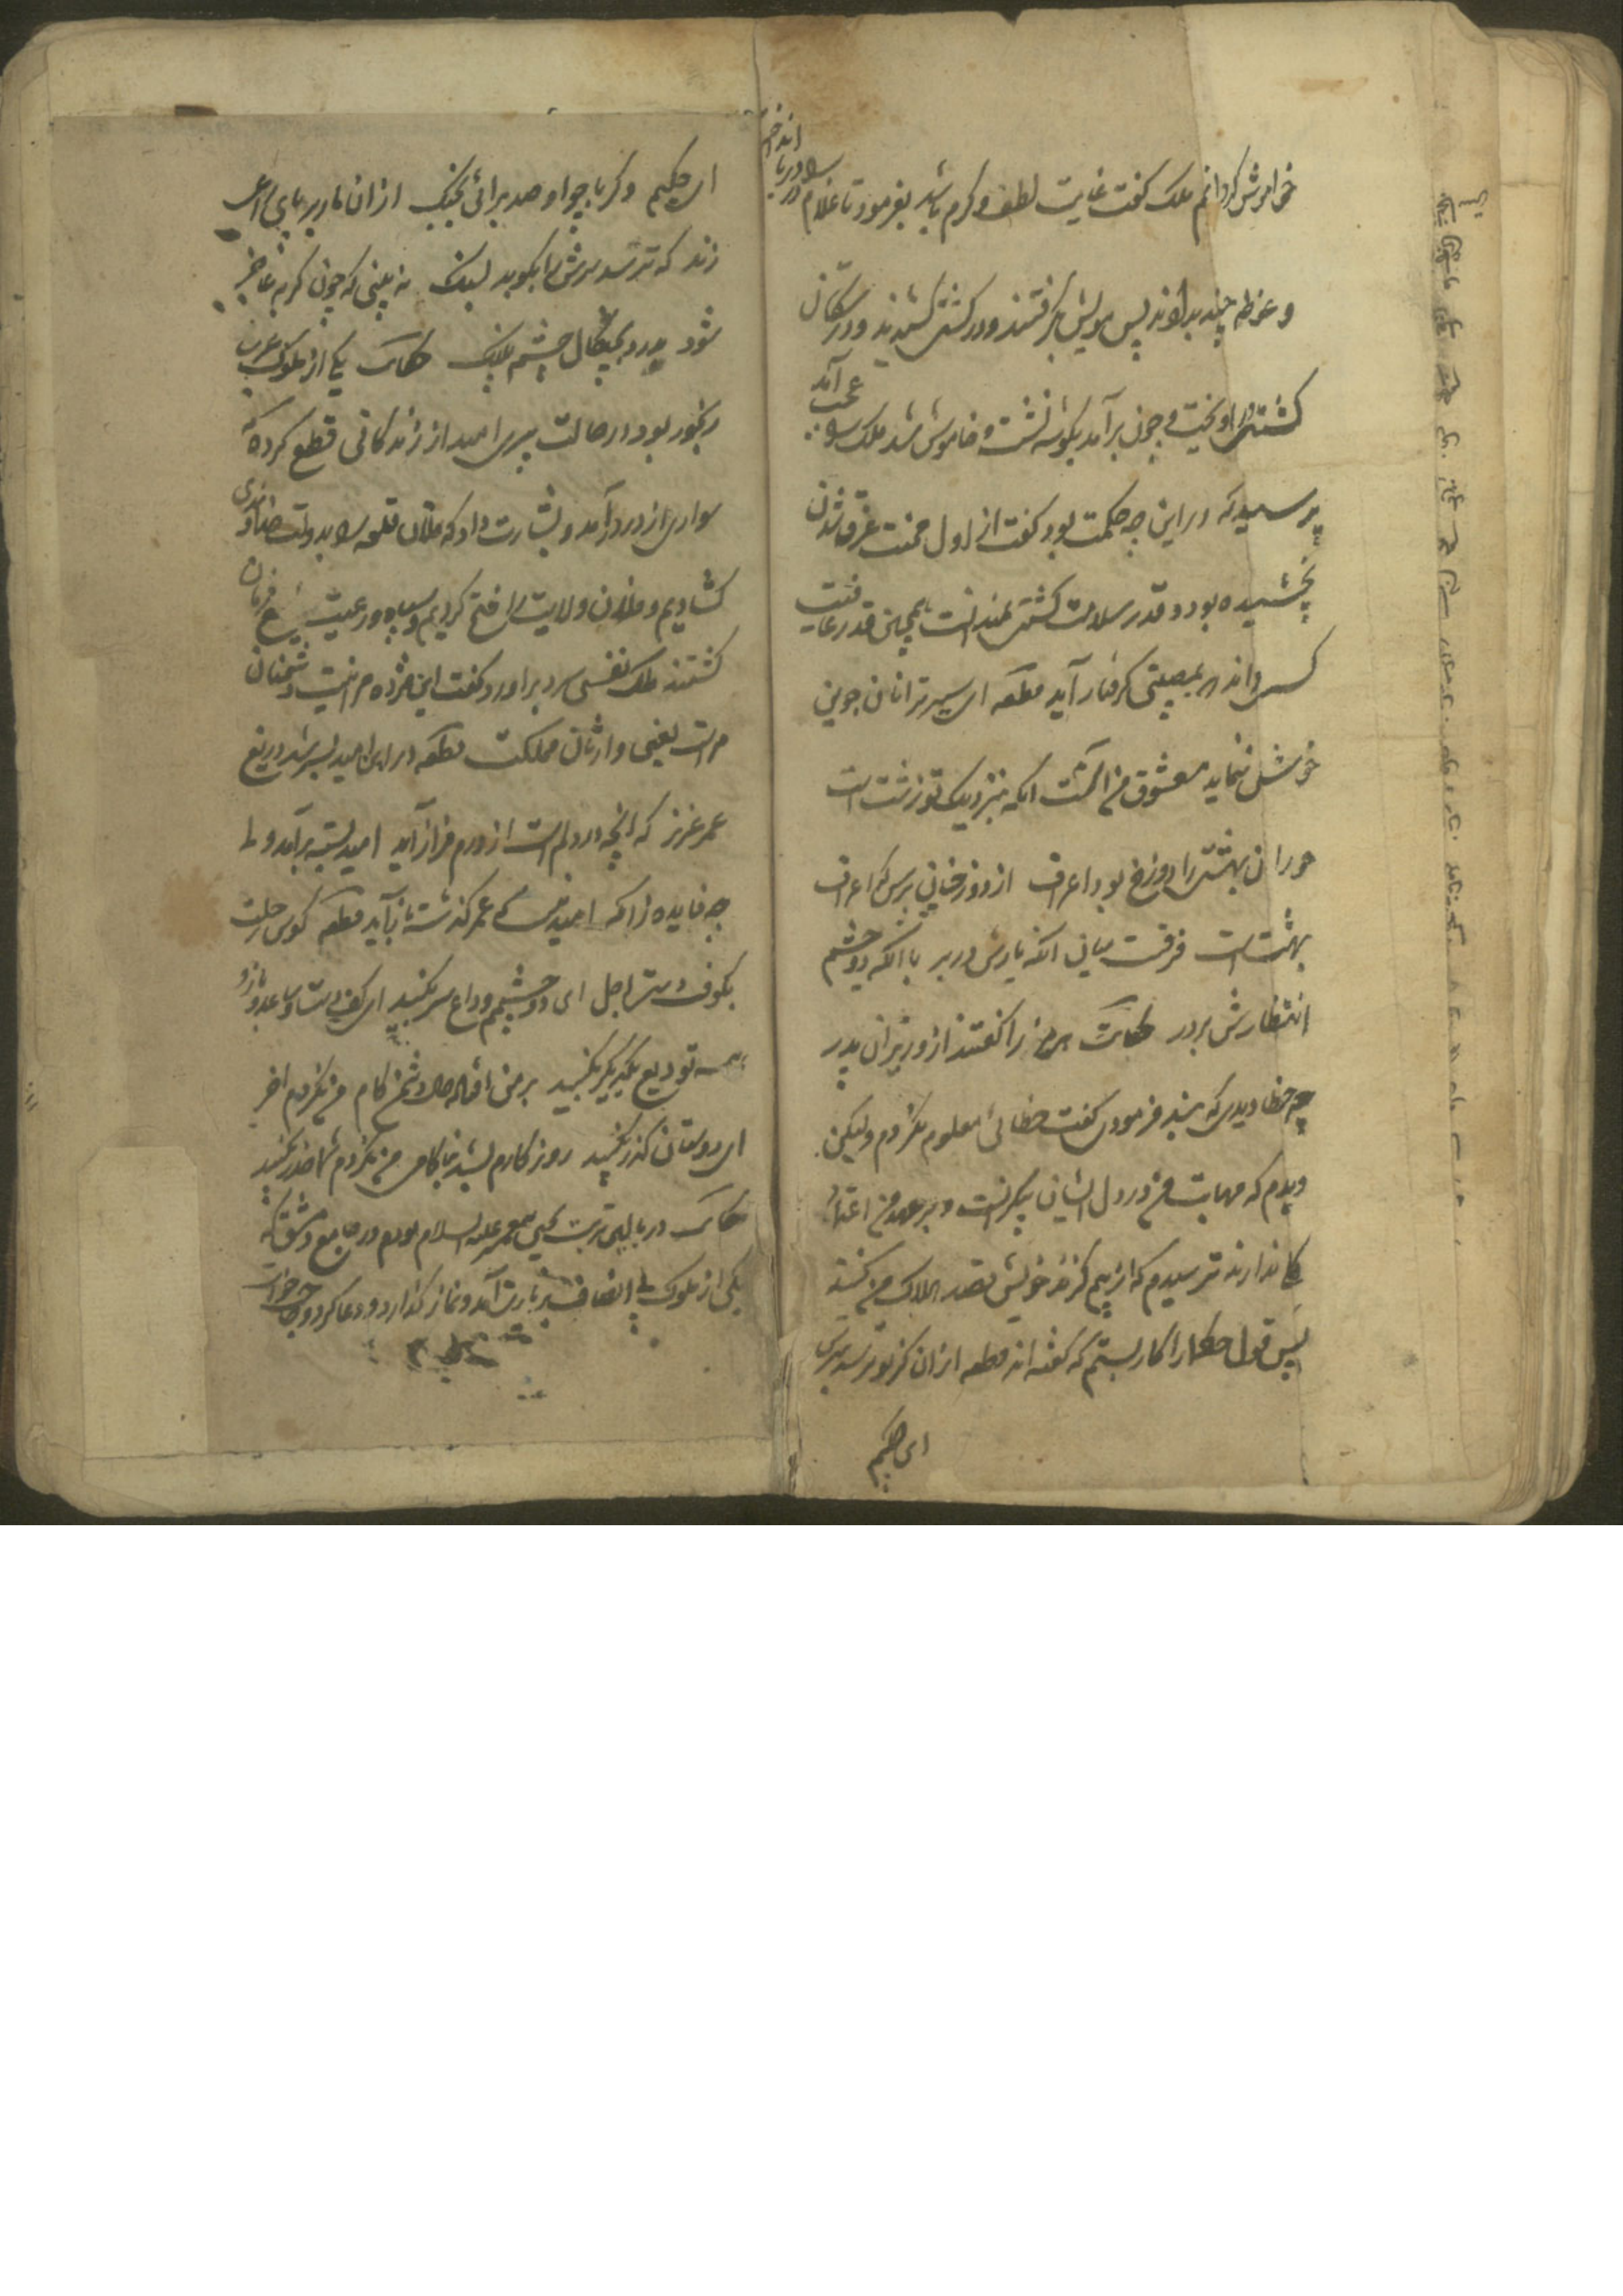 خواموش گردانم ملک گفت غایت لطف و کرم باشد بفرمود تا غلام را در دریا انداخت
و غوطه چند بدادند پس مویش گرفتند و در کشتی کشیدند و در سکان
کشتی آویخت و چون برآمد بگوشه نشست و خاموش شد ملک را عجب آمد
پرسید که در این چه حکمت بود گفت از اول محنت غرق شدن
نچشیده بود و قدر سلامت کشتی نمیدانست همچنین قدر عافیت
کسی داند که بمصیبتی گرفتار آید قطعه ای سیر ترا نان جوین
خوش ننماید معشوق من است آنکه بنزدیک تو زشت است
حوران بهشتی را دوزخ بود اعراف از دوزخیان پرس که اعراف
بهشت است فرقست میان آنکه یارش در بر با آنکه دو چشم
انتظارش بر در حکایت هرمز را گفتند از وزیران پدر
چه خطا دیدی که بند فرمودی گفت خطائی معلوم نکردم ولیکن
دیدم که مهابت من در دل ایشان بیکرانست و بر عهد من اعتماد
کلی ندارند ترسیدم که از بیم گزند خویش قصد هلاک من کنند
پس قول حکما را کار بستم که گفته اند قطعه ازان کز تو ترسد بترس
ای حکیم
ای حکیم وگر با چو او صد برائی بجنگ ازان مار بر پای راعی
زند که ترسد سرش را بکوبد بسنگ نه بینی که چون گربه عاجز
شود برآرد بچنگال چشم پلنگ حکایت یکی از ملوک عرب
رنجور بود در حالت پیری امید از زندگانی قطع کرده که
سواری از در درآمد و بشارت داد که فلان قلعه را بدولت خداوندی
گشادیم و فلان ولایت را فتح کردیم و سپاه و رعیت بفرمان
گشتند ملک نفسی سرد برآورد و گفت این مژده مرا نیست دشمنان
مراست یعنی وارثان مملکت قطعه در این امید بسر شد دریغ
عمر عزیز که آنچه در دلم است از درم فراز آید امید بسته برآمد ولی
چه فایده زانکه امید نیست که عمر گذشته باز آید قطعه کوس رحلت
بکوفت دست اجل ای دو چشمم وداع سر بکنید ای کف دست و ساعد و بازو
همه تودیع یکدیگر بکنید بر من افتاده دشمن کام من نکردم آخر
ای دوستان گذر بکنید روزگارم بشد بناکامی من نکردم شما حذر بکنید
حکایت در بالین تربت یحیی پیغمبر علیه السلام بودم در جامع دمشق که
یکی از ملوک بی انصاف بزیارت آمد و نماز گذارد و دعا کرد و حاجت خواست